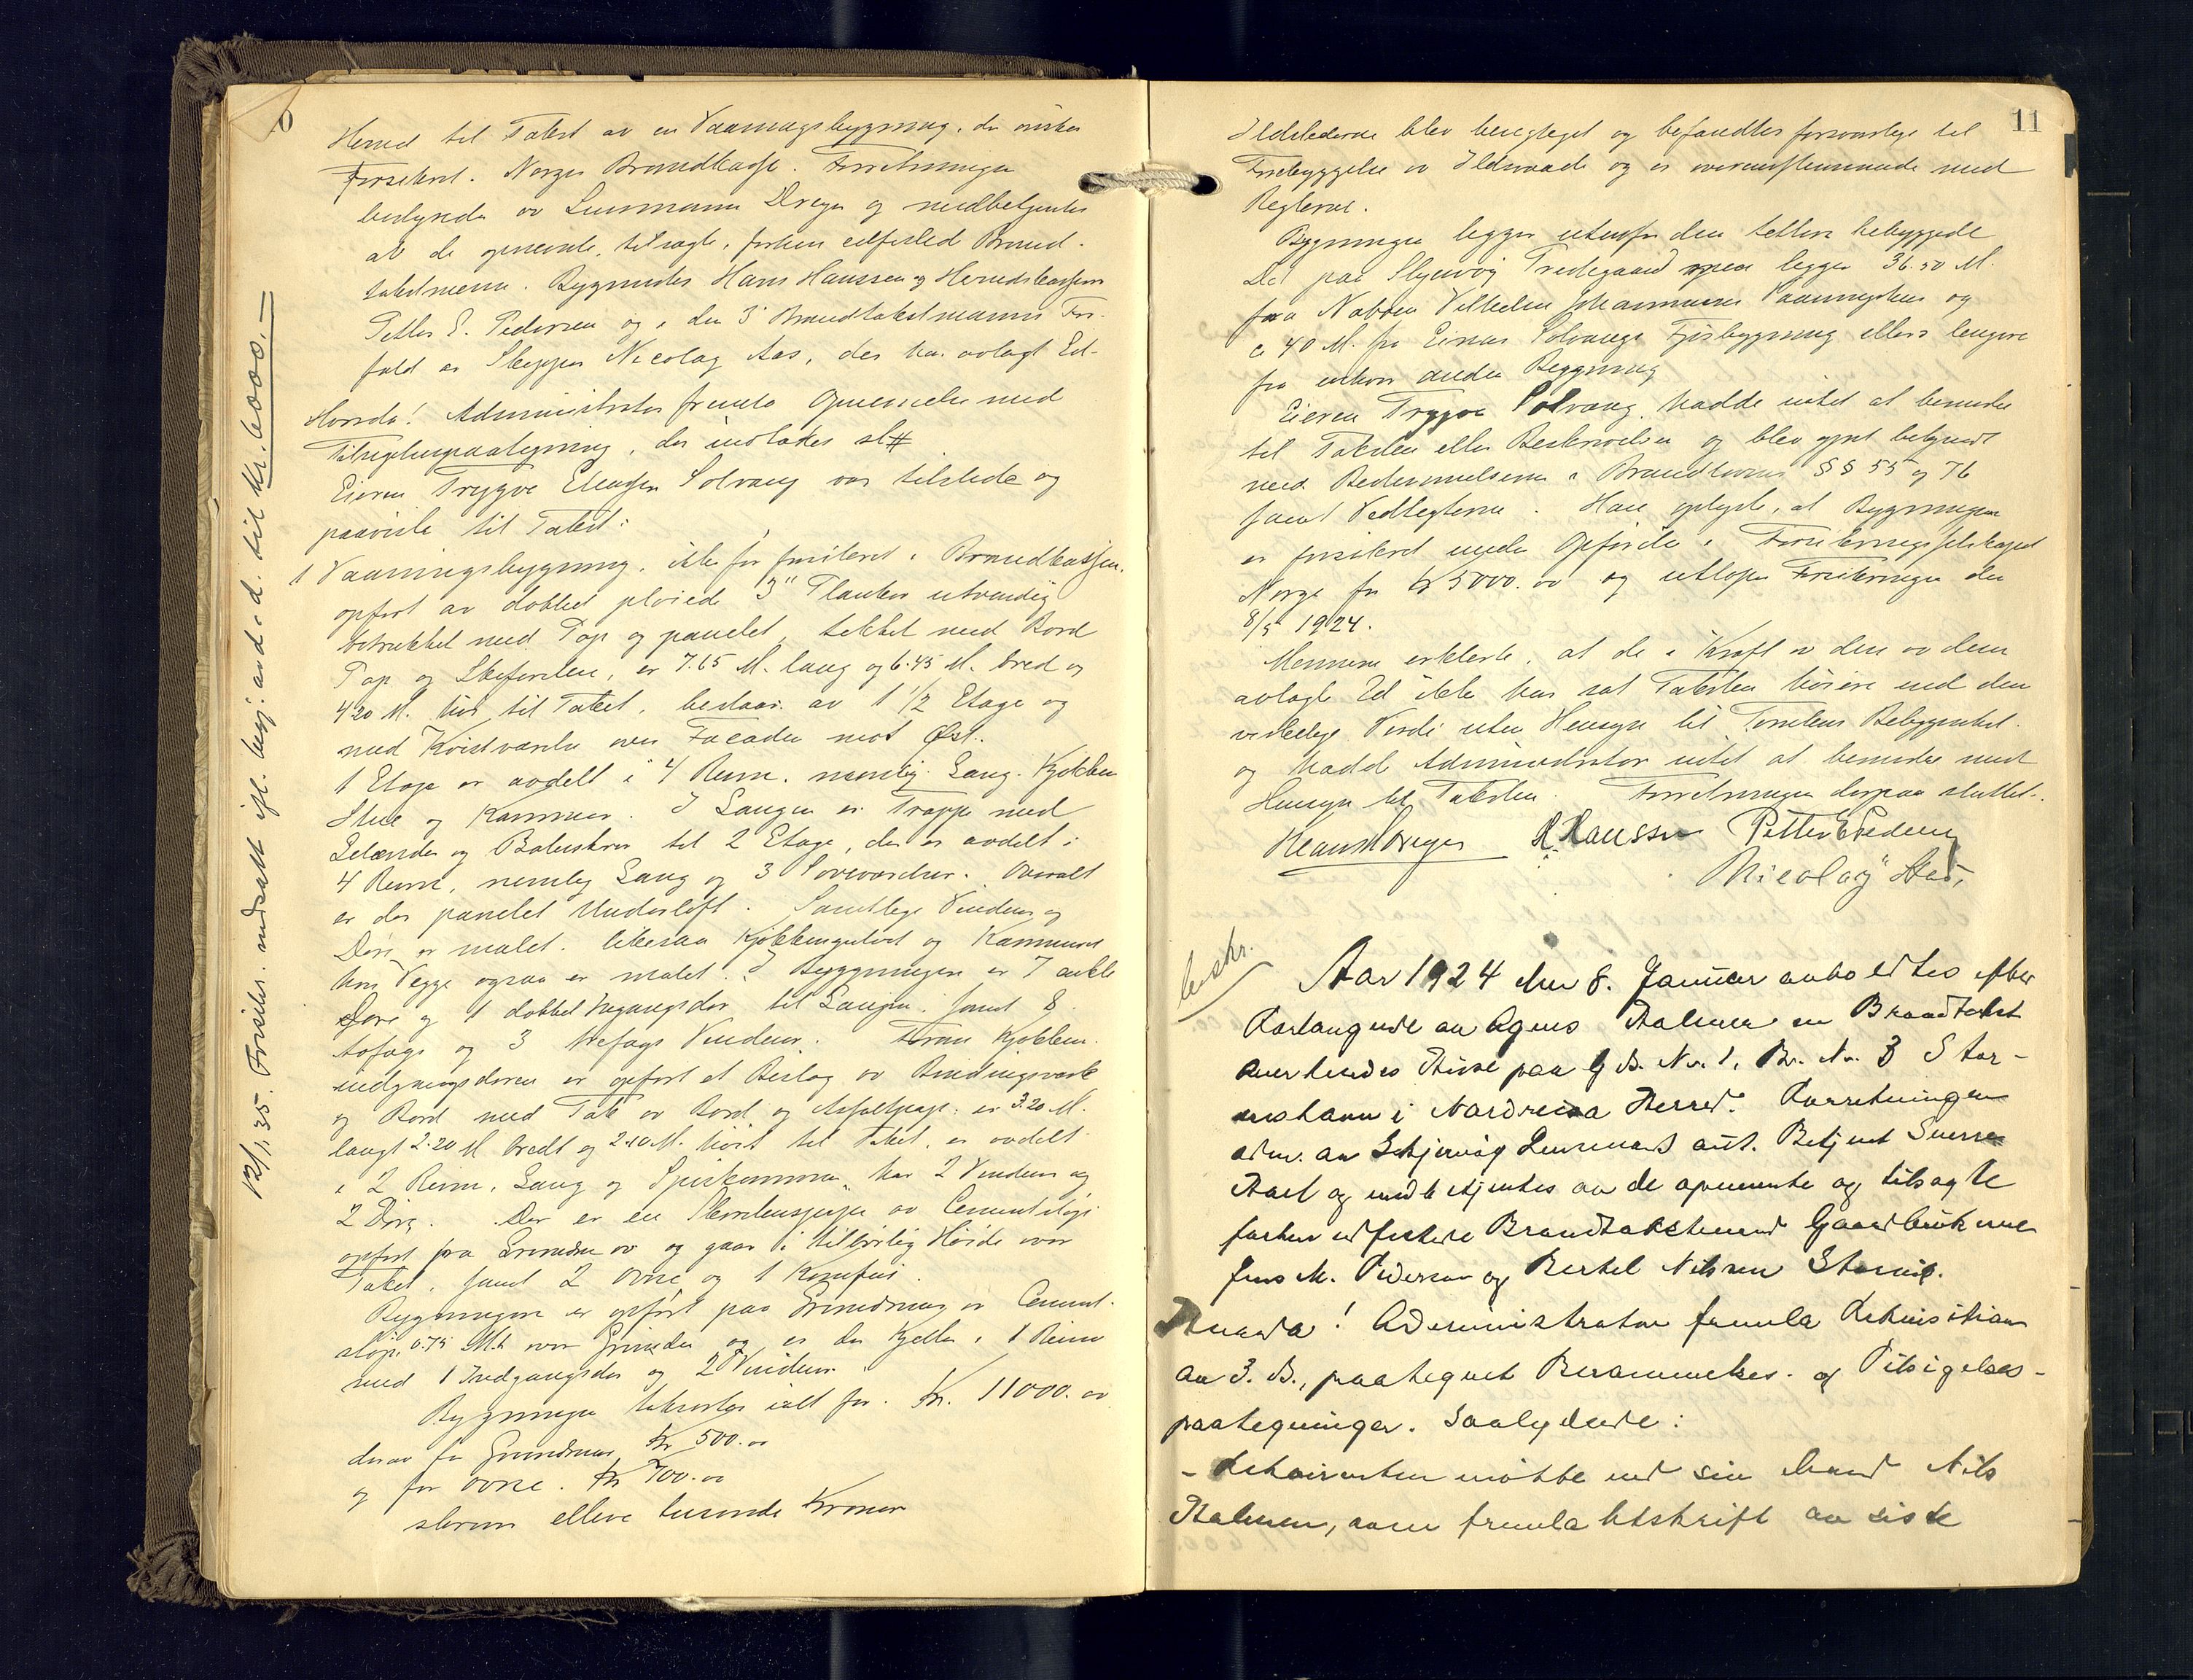 Herred til Takst av en Vaaningsbygning, der ønskes
Forsikret i Norges Brandkasse. Forretningen
bestyredes av Lensmann Dreyer og medbetjentes
at de opnævnte, tilsagte, forhen edfæsted Brand-
takstmenn. Bygmester Hans Hanssen og Herredskasserer
Petter E. Pedersen og i den 3' Brandtakstmanns For-
fald er Skipper Nicolay Aas, der har avlagt Ed-
Hvorda! Administrator fremla Opnevnelse med
Tilsigelsespaategning, der indtakes sl#
Eieren Trygve Eliassen Solvang var tilstede og
paaviste til Takst:
1 Vaaningsbygning, ikke før forsikret i Brandkassen,
opført av dobbel pløiede 3" Planker utvendig
betrukket med Pap og panelet, tekket med Bord
Pap og Skifersten, er 7.65 M. lang og 6.45 M. bred og
4.20 M. høi til Taket, bestaar av 1 1/2 Etage og
med Kvistværelse over Facaden mot Øst.
1 Etage er avdelt i 4 Rum, nemlig: Gang, Kjøkken
Stue og Kammer. I Gangen er Trappe med
Gelænder og Balustrer til 2 Etage, der er avdelt i
4 Rum, nemlig Gang og 3 Soveværelser. Overalt
er der panelet Underloft. Samtlige Vinduer og
Døre er malet, likesaa Kjøkkengulvet og Kammeret
hvis Vegge ogsaa er malet. I Bygningen er 7 enkle
Døre og 1 dobbel Indgangsdør til Gangen, samt 8
tofags og 3 trefags Vinduer. Foran Kjøkken-
indgangsdøren er opført et Bislag av Bindingsverk
og Bord med Tak av Bord og Asfaltpap: er 3.20 M.
langt 2.20 M bredt og 2.10 M. høit til Taket, er avdelt
i 2 Rum, Gang og Spiskammer, har 2 Vinduer og
2 Døre. Der er en Skorstenspipe av Cementstøp
opført fra Grunden av og gaar i tilbørlig Høide over
Taket, samt 2 Ovne og 1 Komfur.
Bygningen er opført paa Grundmur av Cement-
støp, 0.75 M.h over Grunden og er der Kjelder i 1 Rum
med 1 Indgangsdør og 2 Vinduer.
Bygningen taksertes ialt for Kr. 11000.00
derav for Grundmur Kr 500.00
og for Ovne Kr 700.00
skriver elleve tusende Kroner
12/1, 35. Forsikr. nedsatt ifl. begj. av d.d. til kr. 6000.—
11
Ildstederne blev besigtiget og befandtes forsvarlige til
Forebyggelse av Ildsvaade og er overensstemmende med
Reglerne.
Bygningen ligger utenfor den tettere bebyggede
Del paa Skjervøy Prestegaard men ligger 36.50 M.
fra Naboen Vilhelm Johannessens Vaaningshus og
c 40 M. fra Einar Solvangs Fjøsbygning ellers lengere
fra enhver anden Bygning
Eieren Trygve Solvang hadde intet at bemerke
til Taksten eller Beskrivelsen og blev gjort bekjendt
med Bestemmelserne i Brandlovens §§ 55 og 76
samt Vedtegterne. Han oplyste, at Bygningen
er forsikret under Opførelse i Forsikringsselskapet
Norge for Kr 5000.00 og utløper Forsikringen den
8/5 1924.
Mennene erklærte, at de i Kraft av den av dem
avlagte Ed ikke har sat Taksten høiere end den
virkelige Verdi uten Hensyn til Tomtens Beliggenhet
og hadde Administrator intet at bemerke med
Hensyn til Taksten. Forretningen derpaa sluttet.
Hans Dreyer H. Hanssen Petter E Pedersen
Nicolay Aas,
beskr.
Aar 1924 den 8. Januar avholdtes efter
Forlangende av Agnes Halmen en Brandtakst
over hendes Huse paa G. B. No. 1, Br. No. 3 Stor-
havn i Nordreisa Herred. Forretningen
adm. av Skjervøy Lensmand aut. Betjent Sverre
og medbetjentes av de opnevnte og tilsagte
forhen edfestede Brandtakstmend Gaardbrukerne
Jens M. Pedersen og Bertel Nilsen Storvik.
Hvorda! Administrator fremla Rekvisition
av 3. ds., paategnet Berammelses- og Tilsigelses-
paategninger. Saalydende:
- Rekvirenten møtte ved sin Mand Nils
Halmen, som fremla Utskrift av siste